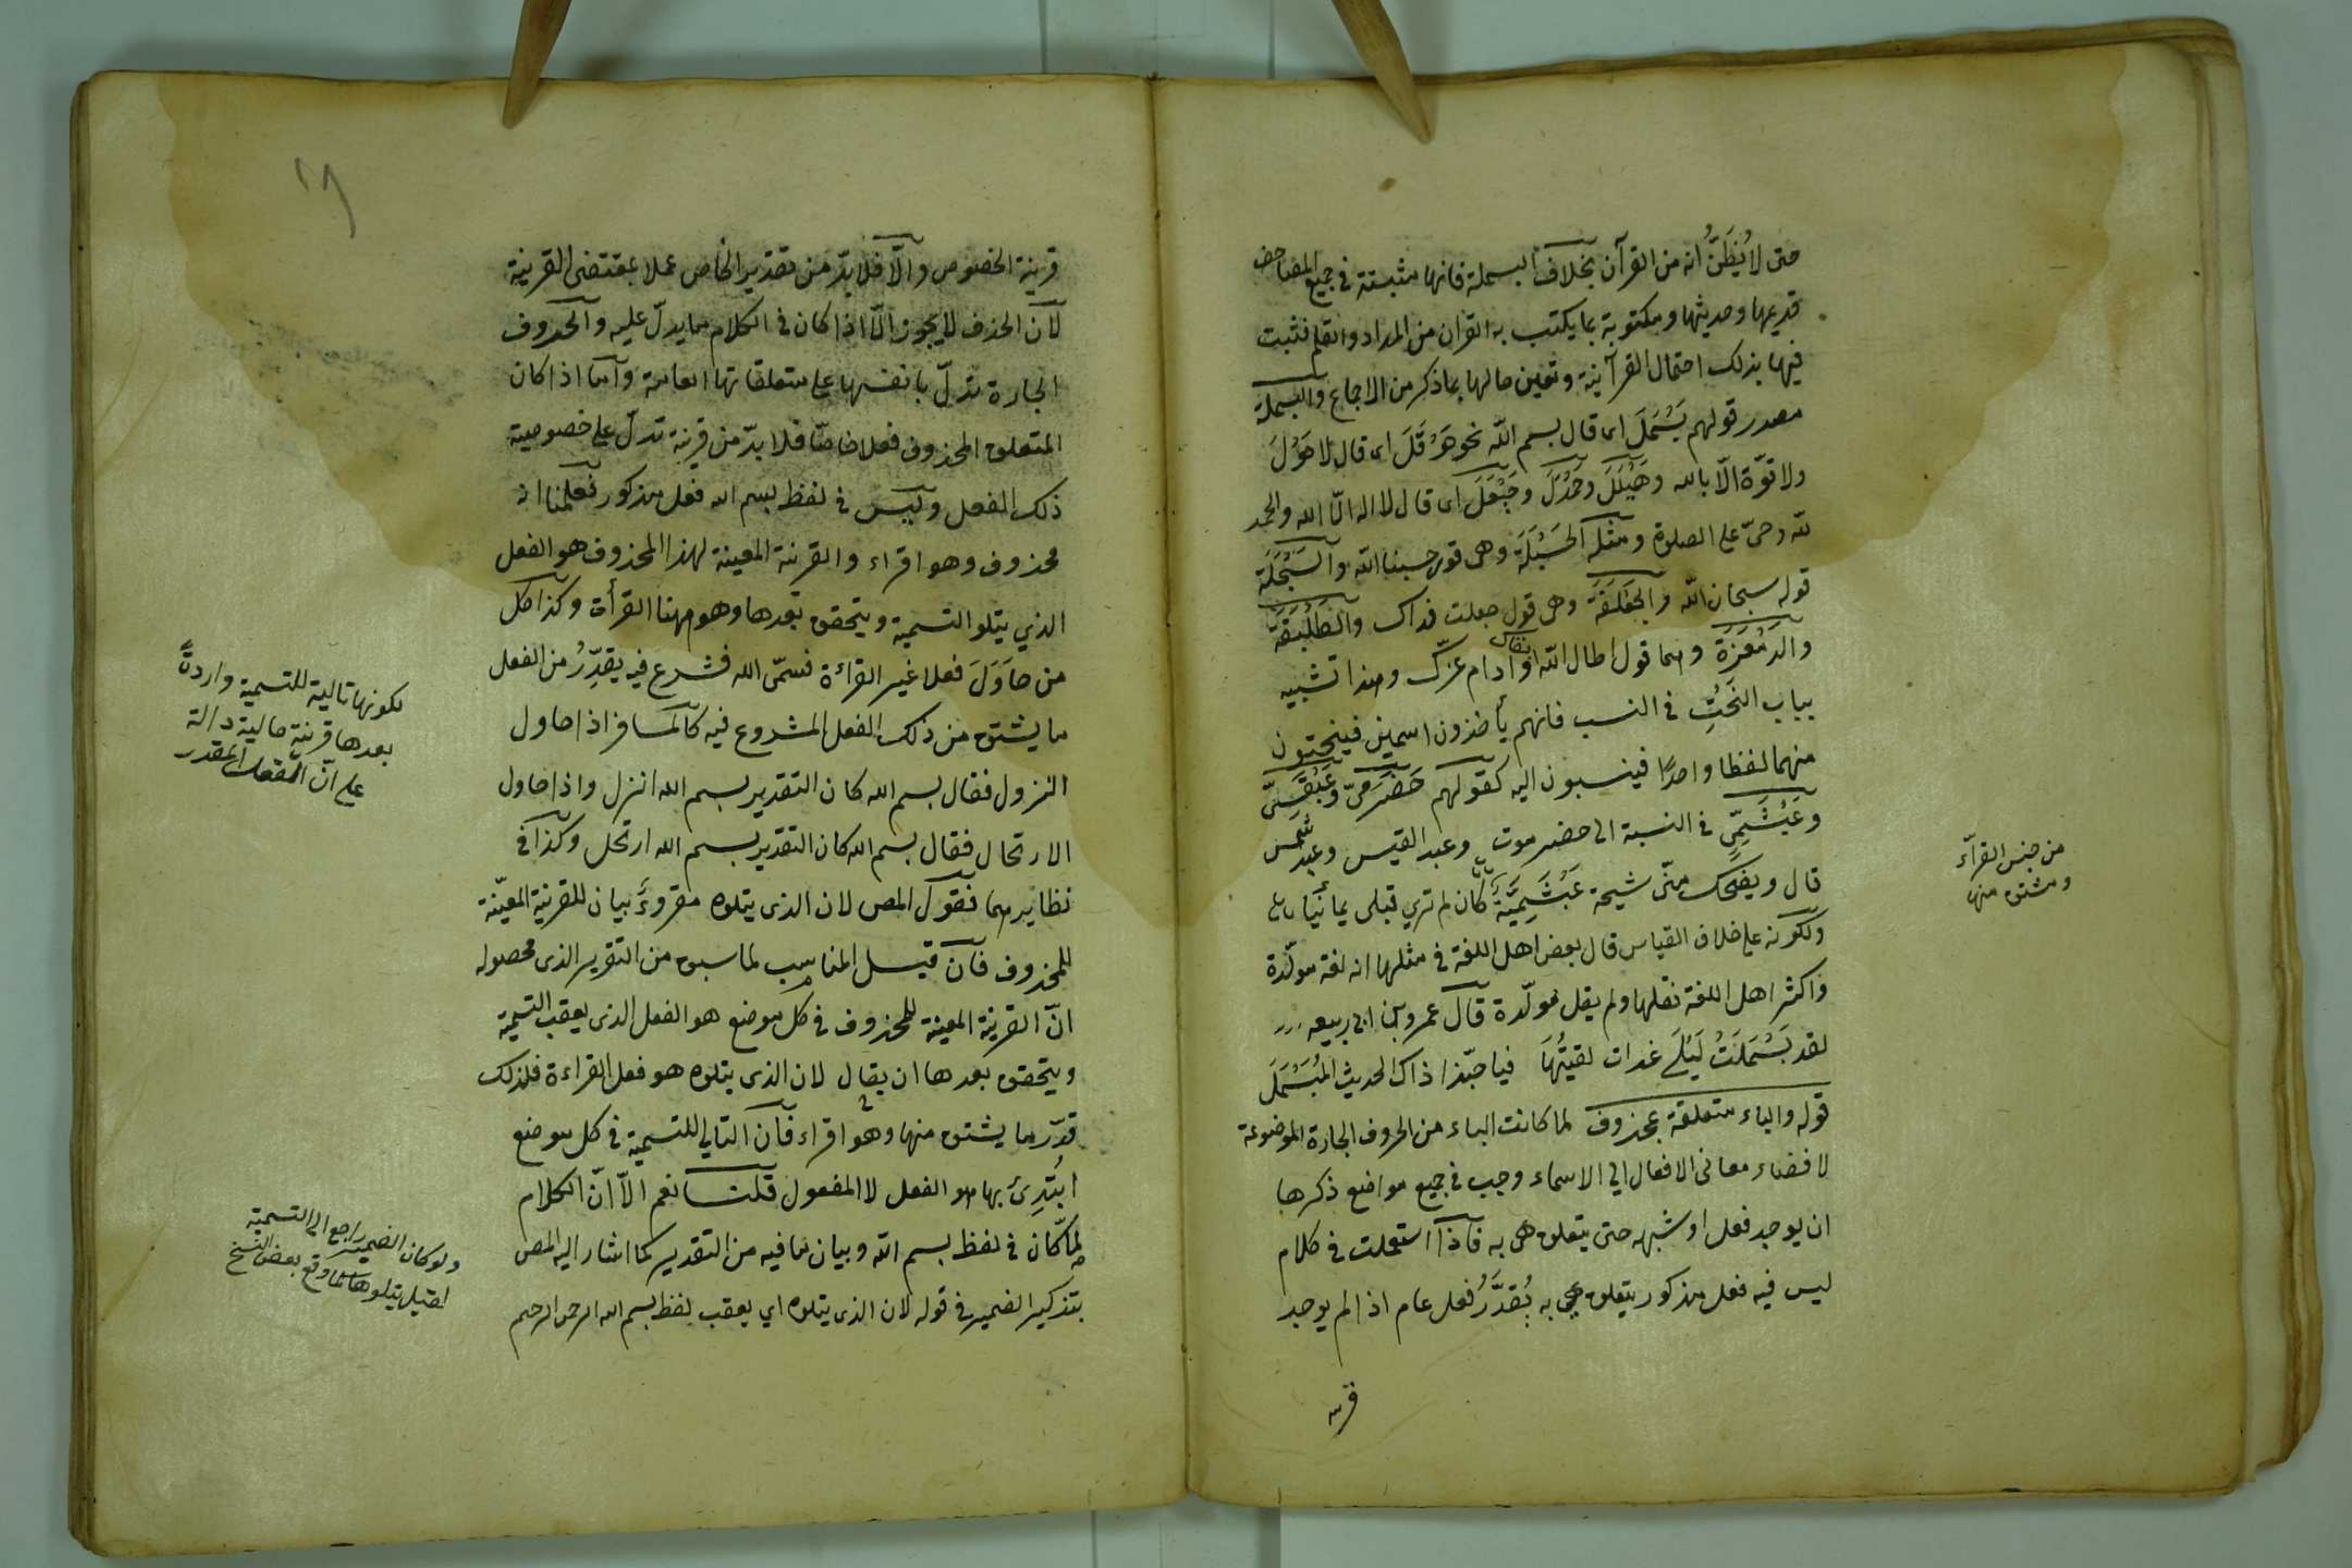 حتى لا يُظَنُّ انه من القرآن بخلاف البسملة فانها مثبتة في جميع المصاحف
قديمها وحديثها ومكتوبة بما يكتب به القران من المداد والقلم فثبت
فيها بذلك احتمال القرآنية وتعين حالها بما ذكر من الاجماع والبسملة
مصدر قولهم بَسْمَلَ اى قال بسم الله نحو حَوْقَلَ اى قال لا حَوْلَ
ولا قوّة الّا بالله وهَيْلَلَ وحَمْدَلَ وحَيْعَلَ اى قال لا اله الّا الله والحمد
لله وحىّ على الصلوة ومثله الحَسْبَلَة وهى قول حسبنا الله والسَبْحَلَة
قوله سبحان الله والجَعْلَفَة وهى قول جعلت فداك والطَلْبَقَة
والدَمْعَزَة وهما قول اطال الله بقاك او ادام عزّك وهذا تشبيه
بباب النَحْتِ في النسب فانهم يأخذون اسمين فينحتون
منهما لفظا واحدًا فينسبون اليه كقولهم حَضْرَمىّ وعَبْقَسِىّ
وعَبْشَمِىّ في النسبة الى حضرموت وعبد القيس وعبد شمس
قال ويضحك منّى شيخة عَبْشَمِيَّة كان لم ترى قبلى يمانيا
ولكونه على خلاف القياس قال بعض اهل اللغة في مثلها انه لغة مولّدة
واكثر اهل اللغة نقلها ولم يقل مولّدة قال عمرو بن ابى ربيعه
لقد بَسْمَلَتْ لَيْلَى غداة لقيتُهَا فيا حبّذا ذاك الحديث المُبَسْمَلَ
قوله والباء متعلقة بمحذوف لما كانت الباء من الحروف الجارة الموضوعة
لافضاء معانى الافعال الى الاسماء وجب في جميع مواضع ذكرها
ان يوجد فعل او شبهه حتى يتعلق هى به فاذا استعملت في كلام
ليس فيه فعل مذكور يتعلق هى به يُقدَّرُ فعل عام اذا لم يوجد
قرينة
من جنس القرآء
ومشتق منها
١٨
قرينة الخصوص والّا فلا بدّ من تقدير الخاص عملا بمقتضى القرينة
لان الحذف لا يجوز الّا اذا كان في الكلام ما يدلّ عليه والحروف
الجارة تدلّ بانفسها على متعلقاتها العامة وامّا اذا كان
المتعلق المحذوف فعلا خاصّا فلا بدّ من قرينة تدلّ على خصوصية
ذلك الفعل وليس في لفظ بسم الله فعل مذكور فعلمنا انه
محذوف وهو اقراء والقرينة المعينة لهذا المحذوف هو الفعل
الذي يتلو التسمية ويتحقق بعدها وهو ههنا القرأة وكذا كل
من حَاوَلَ فعلا غير القراءة فسمّى الله فشرع فيه يقدِّرُ من الفعل
ما يشتق من ذلك الفعل المشروع فيه كالمسافر اذا حاول
النزول فقال بسم الله كان التقدير بسم الله انزل واذا حاول
الارتحال فقال بسم الله كان التقدير بسم الله ارتحل وكذا في
نظايرهما فقول المص لان الذى يتلوه مقروءٌ بيان للقرينة المعيّنة
للمحذوف فان قيل المناسب لما سبق من التقرير الذى محصوله
انّ القرينة المعينة للمحذوف في كل موضع هو الفعل الذى يعقب التسمية
ويتحقق بعدها ان يقال لان الذى يتلوه هو فعل القراءة فلذلك
قدّر ما يشتق منها وهو اقراء فان التالي للتسمية في كل موضع
ابتُدِئ بها هو الفعل لا المفعول قلت نعم الّا انّ الكلام
لمّا كان في لفظ بسم الله وبيان ما فيه من التقدير كما اشار اليه المص
بتذكير الضمير في قوله لان الذى يتلوه اي يعقب لفظ بسم الله الرحمن الرحيم
لكونها تالية للتسمية واردةً
بعدها قرينة حالية دالة
على انّ الفعل المقدر
ولو كان الضمير راجع الى التسمية
لقيل يتلوها كما وقع بعض النسخ